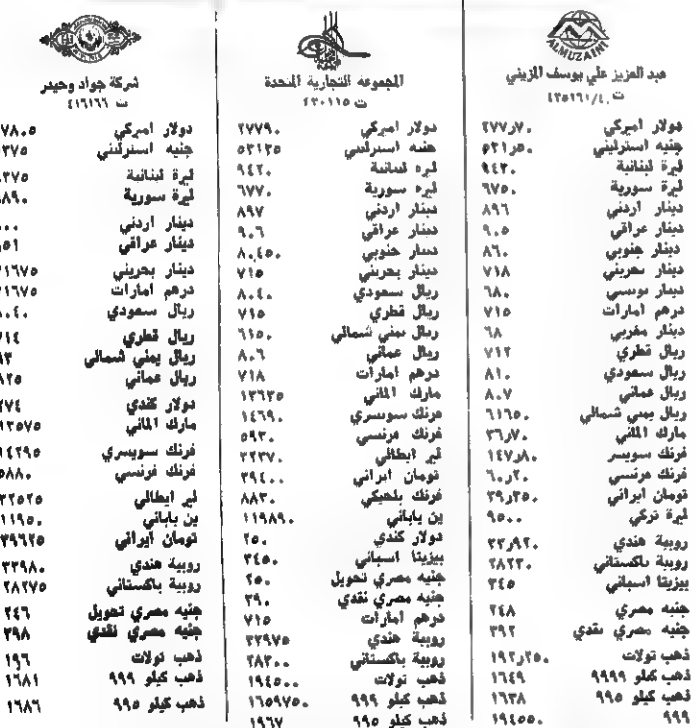 ALMUZAINI
عبد العزيز علي يوسف المزيني
ت ٤٣٥١٦١/٤٠
دولار اميركي ٢٧٧٫٧٠
جنيه استرليني ٥٣١٫٥٠
ليرة لبنانية ٩٤٣٠
ليرة سورية ٦٧٥٠
دينار اردني ٨٩٦
دينار عراقي ٩٠٥
دينار جنوبي ٨٦٠
دينار بحريني ٧١٨
دينار تونسي ٦٨٠
درهم امارات ٧١٥
دينار مغربي ٦٨
ريال قطري ٧١٢
ريال سعودي ٨١٠
ريال عماني ٨٠٧
ريال يمني شمالي ٦١٦٥٠
مارك الماني ٣٦٫٧٠
فرنك سويسر ١٤٧٫٨٠
فرنك فرنسي ٦٠٫٢٠
تومان ايراني ٣٩٫٣٥٠
ليرة تركي ٩٥٠٠
روبية هندي ٣٣٫٩٢٠
روبية باكستاني ٢٨٢٣٠
بيزيتا اسباني ٣٤٥
جنيه مصري ٢٤٨
جنيه مصري نقدي ٣٩٢
ذهب تولات ١٩٢٫٢٥٠
ذهب كيلو ٩٩٩٩ ١٦٤٩
ذهب كيلو ٩٩٥ ١٦٣٨
٩٩٩ ١٩٤٥٥٠
المجموعة التجارية المتحدة
ت ٤٣٠١١٥
دولار اميركي ٢٧٧٩٠
جنيه استرليني ٥٣١٣٥
ليرة لبنانية ٩٤٢٠
ليرة سورية ٦٧٧٠
دينار اردني ٨٩٧
دينار عراقي ٩٠٦
دينار جنوبي ٨٠٤٥٠
دينار بحريني ٧١٥
ريال سعودي ٨٠٤٠
ريال قطري ٧١٥
ريال يمني شمالي ٦١٥٠
ريال عماني ٨٠٦
درهم امارات ٧١٨
مارك الماني ١٣٦٣٥
فرنك سويسري ١٤٦٩٠
فرنك فرنسي ٥٩٣٠
لير ايطالي ٢٢٣٧٠
تومان ايراني ٣٩٤٠٠
فرنك بلجيكي ٨٨٣٠
ين ياباني ١١٩٨٩٠
دولار كندي ٢٥٠
بيزيتا اسباني ٣٤٥٠
جنيه مصري تحويل ٢٥٠
جنيه مصري نقدي ٣٩٠
درهم امارات ٧١٥
روبية هندي ٣٣٩٧٥
روبية باكستاني ٢٨٣٠٠
ذهب تولات ١٩٤٥٠٠
ذهب كيلو ٩٩٩ ١٦٥٩٧٥٠
ذهب كيلو ٩٩٥ ١٩٦٧
شركة جواد وحيدر
ت ٤١٦١٦٦
دولار اميركي ٧٨٠٥
جنيه استرليني ٣٧٥
ليرة لبنانية ٣٧٥
ليرة سورية ٨٩٠
دينار اردني ٠٠٠
دينار عراقي ٥١
دينار بحريني ١٦٧٥
درهم امارات ١٦٧٥
ريال سعودي ٠٤٠
ريال قطري ١٤
ريال يمني شمالي ٣
ريال عماني ٢٥
دولار كندي ٢٧٤
مارك الماني ٣٥٧٥
فرنك سويسري ٤٢٩٥
فرنك فرنسي ٥٨٨٠
لير ايطالي ٢٢٥٢٥
ين ياباني ١١٩٥٠
تومان ايراني ٣٩٦٢٥
روبية هندي ٣٣٩٨٠
روبية باكستاني ٢٨٢٧٥
جنيه مصري تحويل ٢٤٦
جنيه مصري نقدي ٣٩٨
ذهب تولات ١٩٦
ذهب كيلو ٩٩٩ ١٦٨١
ذهب كيلو ٩٩٥ ١٦٨٦